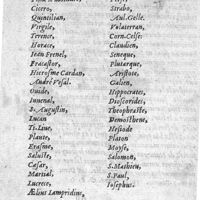 Cicero,
Quintilian,
Vergile,
Terence,
Horace,
Iean Fernel,
Fracastor,
Hierosme Cardan,
André Vesal.
Ouide,
Iuuenal,
S. Augustin,
Lucan
Ti-Liue,
Plante,
Erasme,
Saluste,
Cæsar,
Martial,
Lucrece,
Ælius Lampridius,
Strabo,
Aul.Gelle.
Volaterran,
Corn-Celse.
Claudien,
Seneque,
Plutarque,
Aristote,
Galien,
Hippocrates,
Dioscorides,
Theophraste,
Demosthene,
Hesiode
Platon
Moyse,
Salomon,
S.Mathieu,
S.Paul,
Iosephus.